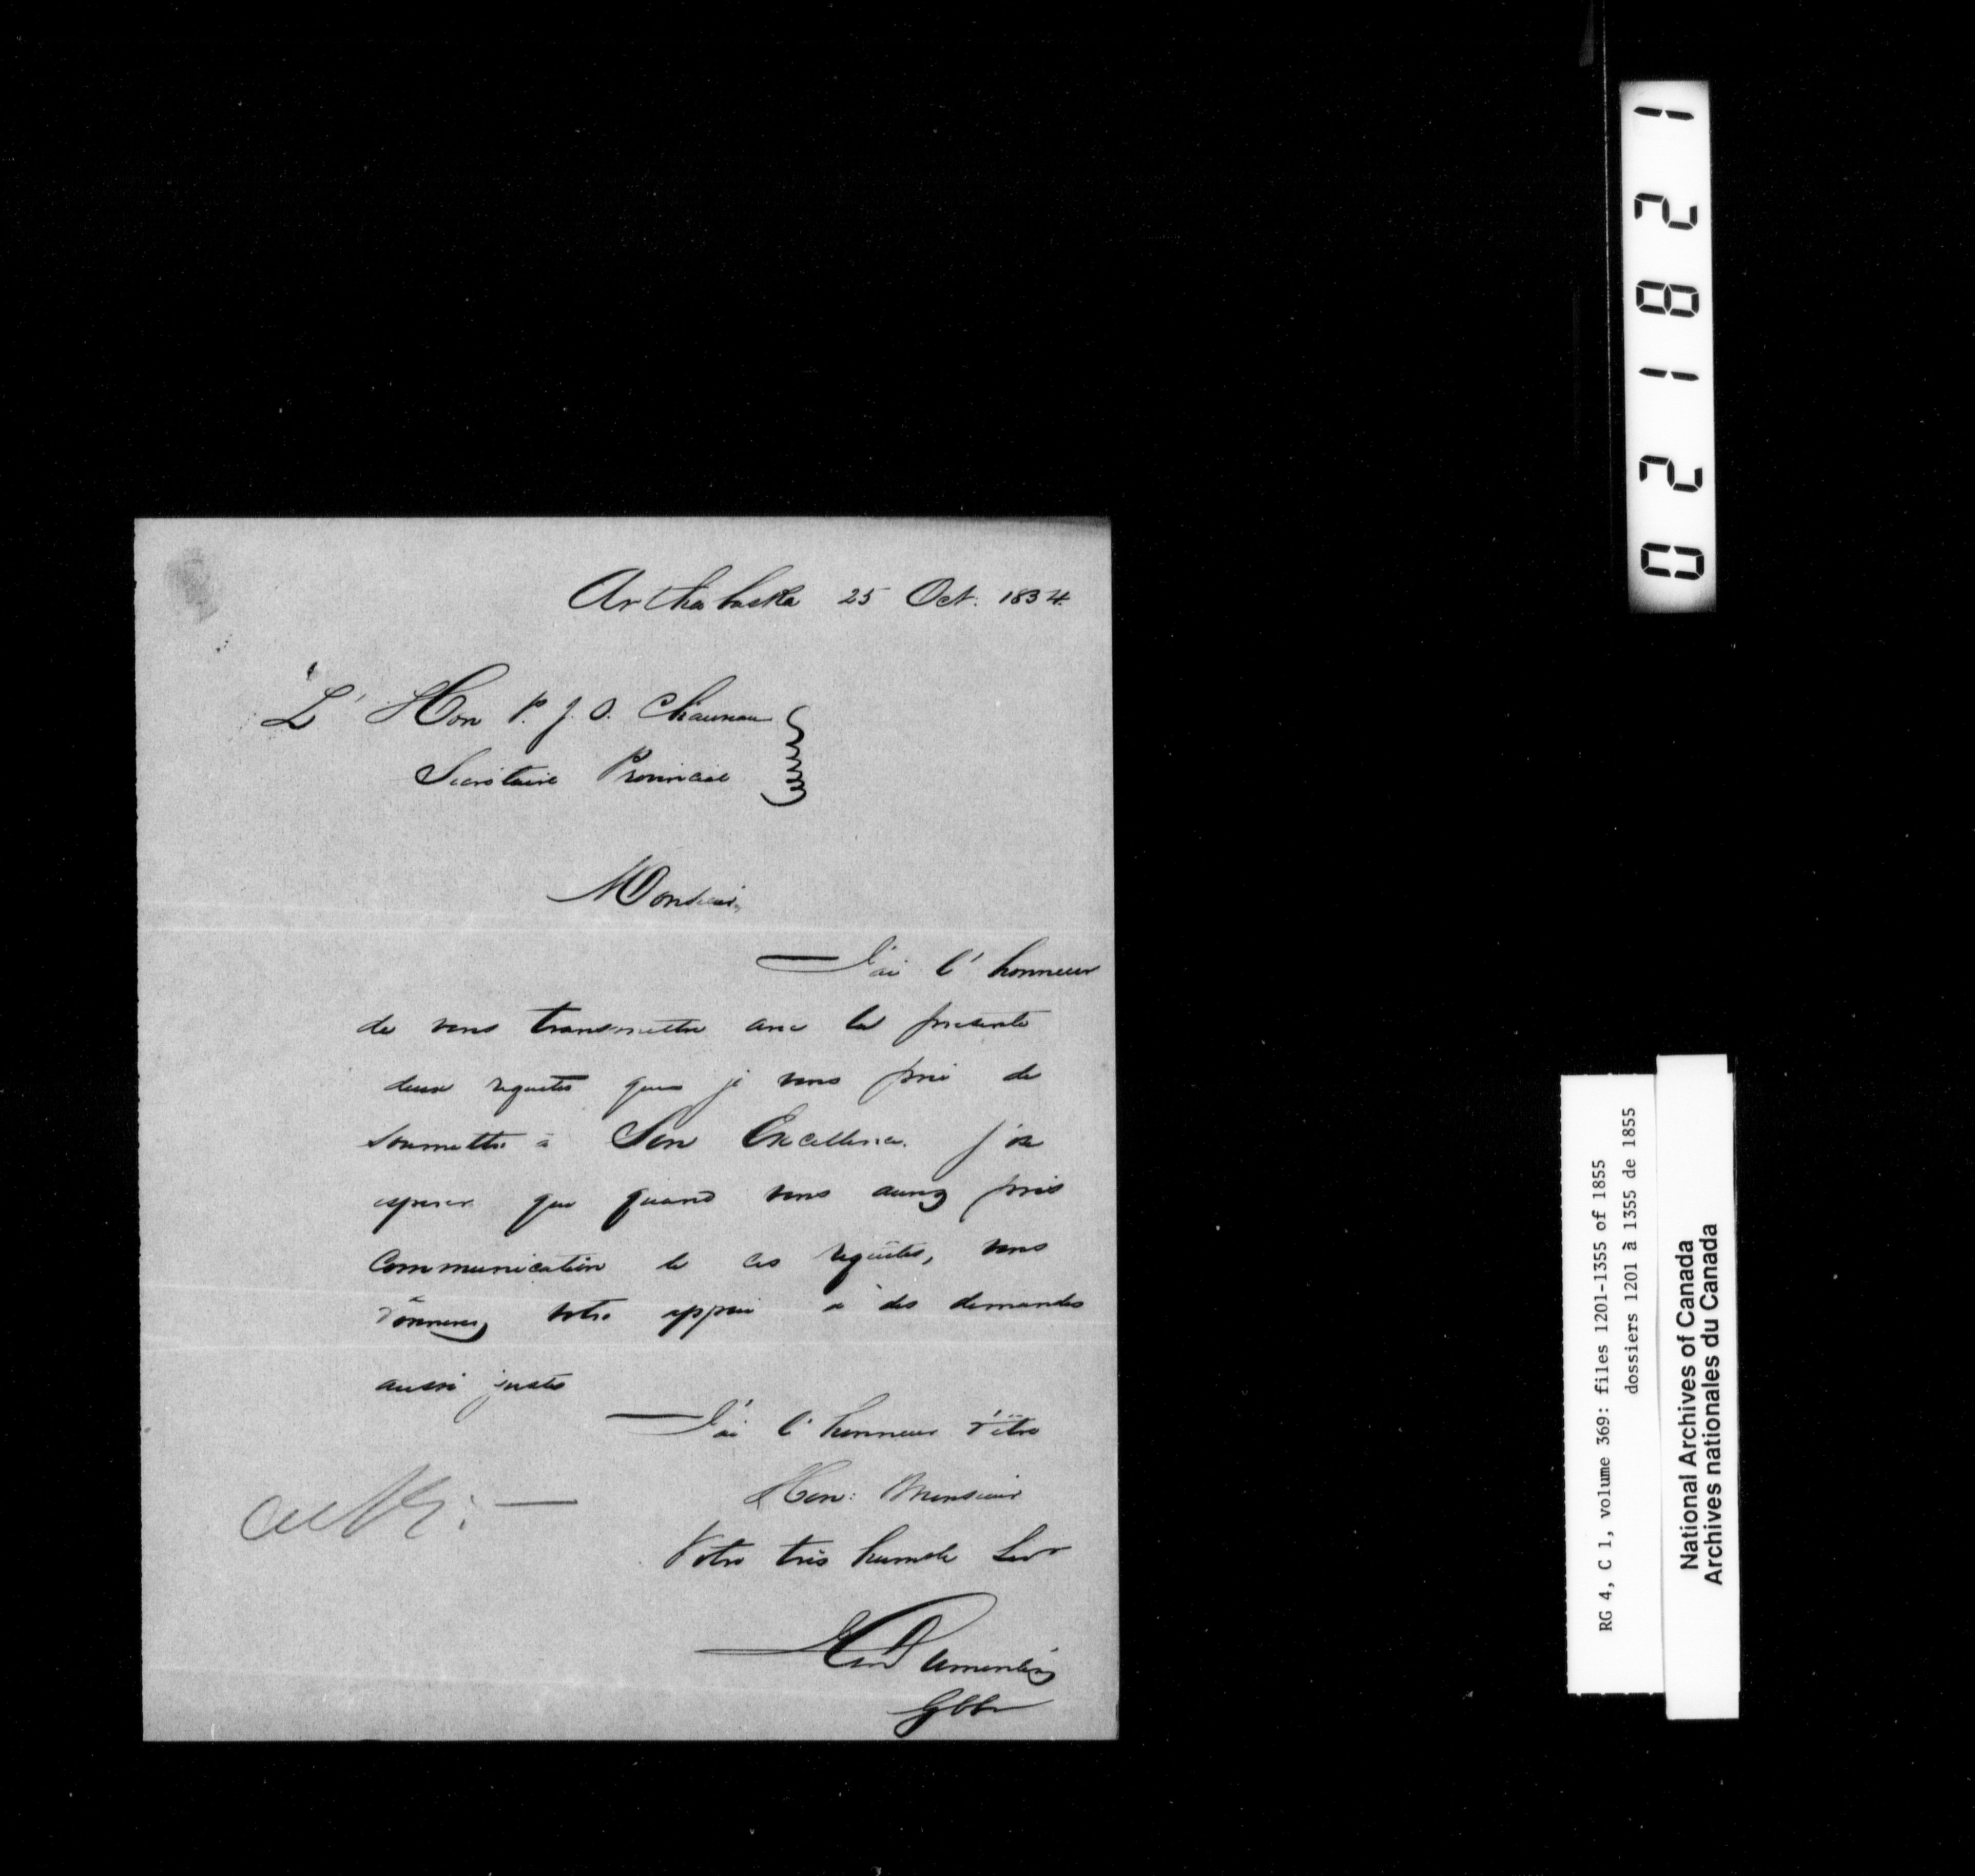 Arthabaska 25 Oct. 1854.
L' Hon P. J. O. Chauveau
Secrétaire Provincial
Monsieur,
J'ai l'honneur
de vous transmettre avec la presente
deux requetes que je vous prie de
soumettre à Son Excellence. J'ose
esperer que quand vous aurez pris
Communication de ces requêtes, vous
donnerez votre appui à des demandes
aussi justes
J'ai l'honneur d'être
Hon: Monsieur
Votre très humble Servr
021821
RG 4, C 1, volume 369: files 1201-1355 of 1855
dossiers 1201 à 1355 de 1855
National Archives of Canada
Archives nationales du Canada